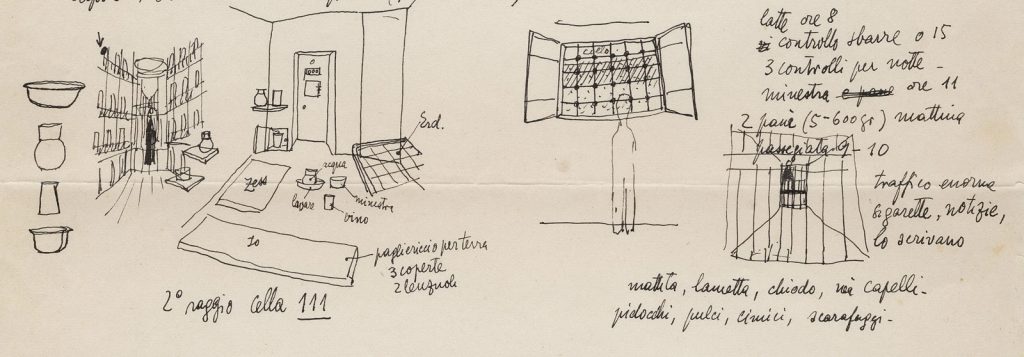 Erd.
Zess
acqua
lavare
minestra
vino
Io
pagliericcio per terra
3 coperte
2 lenzuoli
2° raggio cella 111
cielo
latte ore 8
controllo sbarre o 15
3 controlli per notte -
minestra e pane ore 11
2 pane (5-600gr) mattina
passeggiata 9-10
traffico enorme
sigarette, notizie,
lo scrivano
matita, lametta, chiodo, via capelli -
pidocchi, pulci, cimici, scarafaggi -